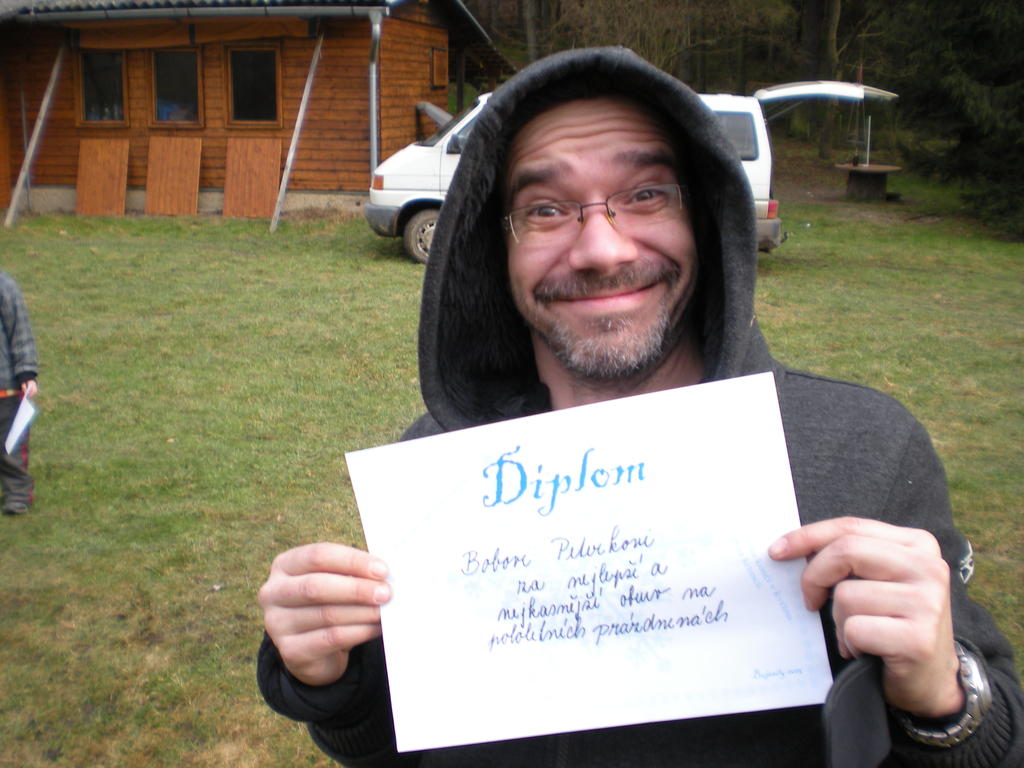 Ďiplom
Bobovi Peterkovi
za nejlepší a
nejkasnější obuv na
pololetních prázdninách